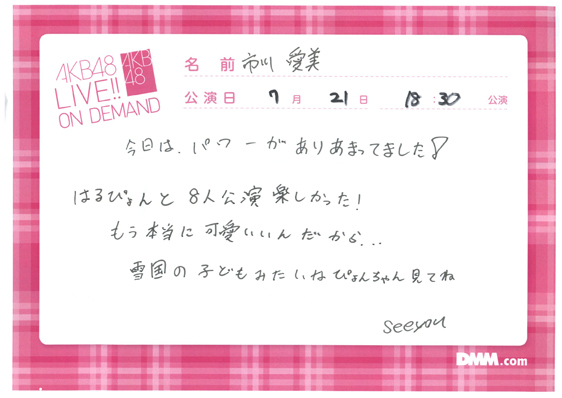 AKB48
LIVE!!
ON DEMAND
AKB
48
名 前 市川 愛美
公演日 7月 21日 18:30 公演
今日は、パワーがありあまってました!
はるぴょんと 8人公演 楽しかった!
もう本当に 可愛いいんだから...
雪国の子どもみたいなぴょんちゃん見てね
seeyou
DMM.com